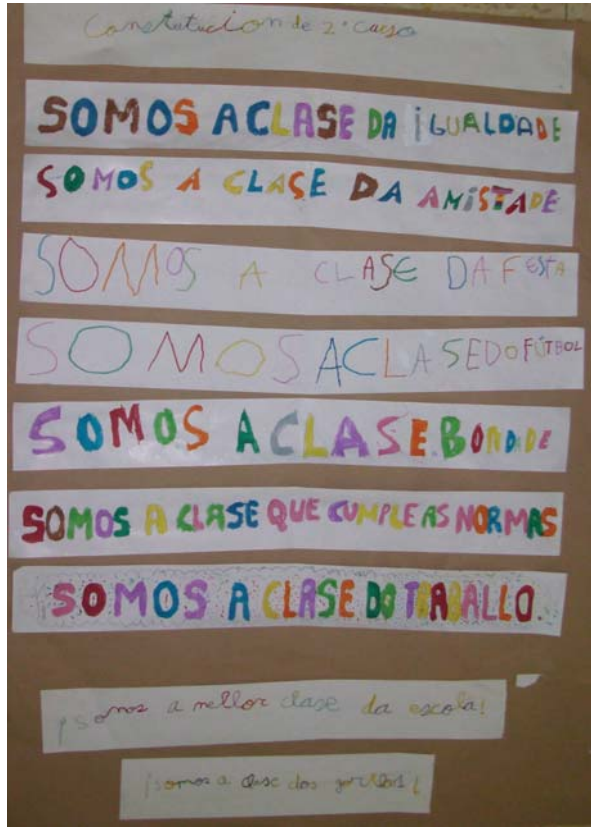 Constitución de 2º Curso
SOMOS A CLASE DA iGUALDADE
SOMOS A CLASE DA AMiSTADE
SOMOS A CLASE DA FESTA
SOMOS A CLASE DO FÚTBOL
SOMOS A CLASE BONDADE
SOMOS A CLASE QUE CUMPLE AS NORMAS
¡SOMOS A CLASE DO TRABALLO.
¡Somos a mellor clase da escola!
¡somos a clase dos